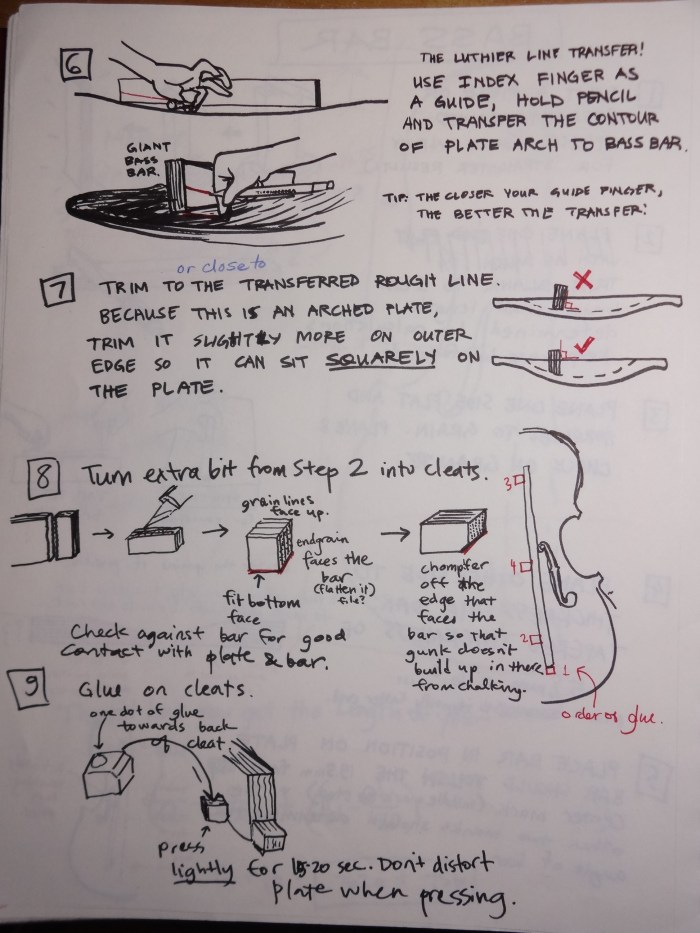 6
THE LUTHIER LINE TRANSFER!
USE INDEX FINGER AS
A GUIDE, HOLD PENCIL
AND TRANSFER THE CONTOUR
OF PLATE ARCH TO BASS BAR.
GIANT
BASS
BAR.
TIP: THE CLOSER YOUR GUIDE FINGER,
THE BETTER THE TRANSFER!
or close to
7
TRIM TO THE TRANSFERRED ROUGH LINE.
BECAUSE THIS IS AN ARCHED PLATE,
TRIM IT SLIGHTLY MORE ON OUTER
EDGE SO IT CAN SIT SQUARELY ON
THE PLATE.
8 Turn extra bit from Step 2 into cleats.
grain lines
face up.
endgrain
faces the
bar
(flatten it)
file?
fit bottom
face
chompfer
off the
edge that
faces the
bar so that
gunk doesn't
build up in there
from chalking.
3
4
2
1
order of glue.
Check against bar for good
contact with plate & bar.
9 Glue on cleats.
one dot of glue
towards back
of cleat
press
lightly for 15-20 sec. Don't distort
plate when pressing.